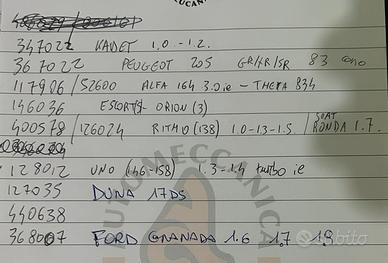 347022 KADET 1.0 -1.2.
367022 PEUGEOT 205 GR/XR/SR 83 cono
117906 / 52600 ALFA 164 3.0ie - THEMA 834
146036 ESCORT(3)- ORION (3)
400578 / 126024 RITMO (138) 1.0-1.3-1.5 / SEAT RONDA 1.7.
128012 UNO (146-158) 1.3-1.4 turbo ie
127035 DUNA 17DS
440638
368007 FORD GRANADA 1.6 1,7 1.9
AUTOMECCANICA
subito